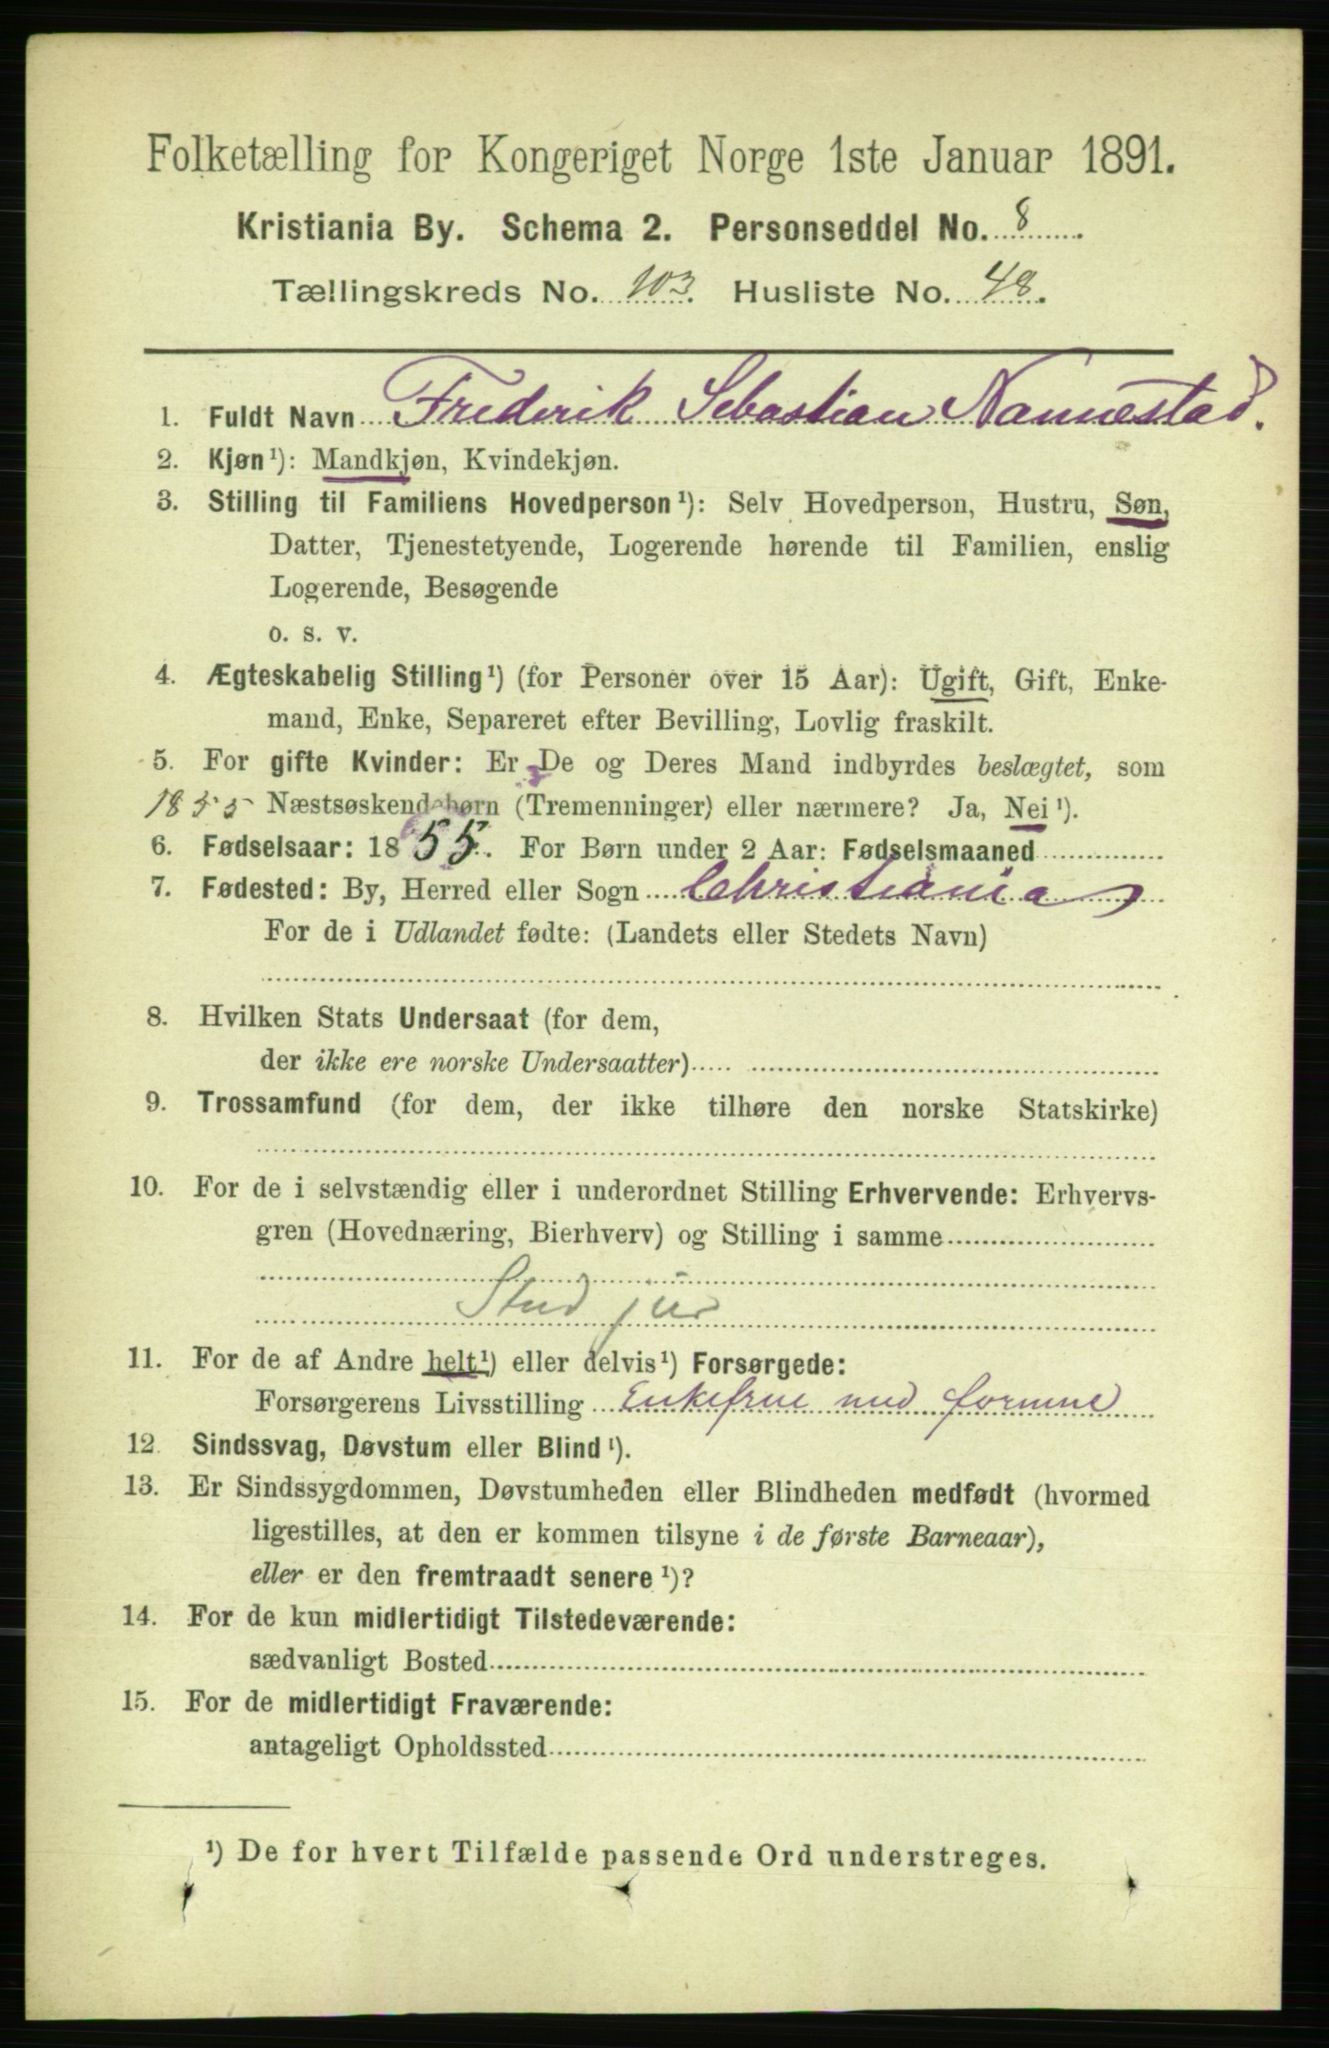 Folketælling for Kongeriget Norge 1ste Januar 1891.
Kristiania By. Schema 2. Personseddel No. 8
Tællingskreds No. 103. Husliste No. 48.
1. Fuldt Navn Frederik Sebastian Nannestad.
2. Kjøn¹): Mandkjøn, Kvindekjøn.
3. Stilling til Familiens Hovedperson¹): Selv Hovedperson, Hustru, Søn,
Datter, Tjenestetyende, Logerende hørende til Familien, enslig
Logerende, Besøgende
o. s. v.
4. Ægteskabelig Stilling¹) (for Personer over 15 Aar): Ugift, Gift, Enke-
mand, Enke, Separeret efter Bevilling, Lovlig fraskilt.
5. For gifte Kvinder: Er De og Deres Mand indbyrdes beslægtet, som
1855 Næstsøskendebørn (Tremenninger) eller nærmere? Ja, Nei¹).
6. Fødselsaar: 1855. For Børn under 2 Aar: Fødselsmaaned
7. Fødested: By, Herred eller Sogn Christiania
For de i Udlandet fødte: (Landets eller Stedets Navn)
8. Hvilken Stats Undersaat (for dem,
der ikke ere norske Undersaatter)
9. Trossamfund (for dem, der ikke tilhøre den norske Statskirke)
10. For de i selvstændig eller i underordnet Stilling Erhvervende: Erhvervs-
gren (Hovednæring, Bierhverv) og Stilling i samme
Stud jur
11. For de af Andre helt¹) eller delvis¹) Forsørgede:
Forsørgerens Livsstilling Enkefrue med formue
12 Sindssvag, Døvstum eller Blind¹).
13. Er Sindssygdommen, Døvstumheden eller Blindheden medfødt (hvormed
ligestilles, at den er kommen tilsyne i de første Barneaar),
eller er den fremtraadt senere¹)?
14. For de kun midlertidigt Tilstedeværende:
sædvanligt Bosted
15. For de midlertidigt Fraværende:
antageligt Opholdssted
¹) De for hvert Tilfælde passende Ord understreges.